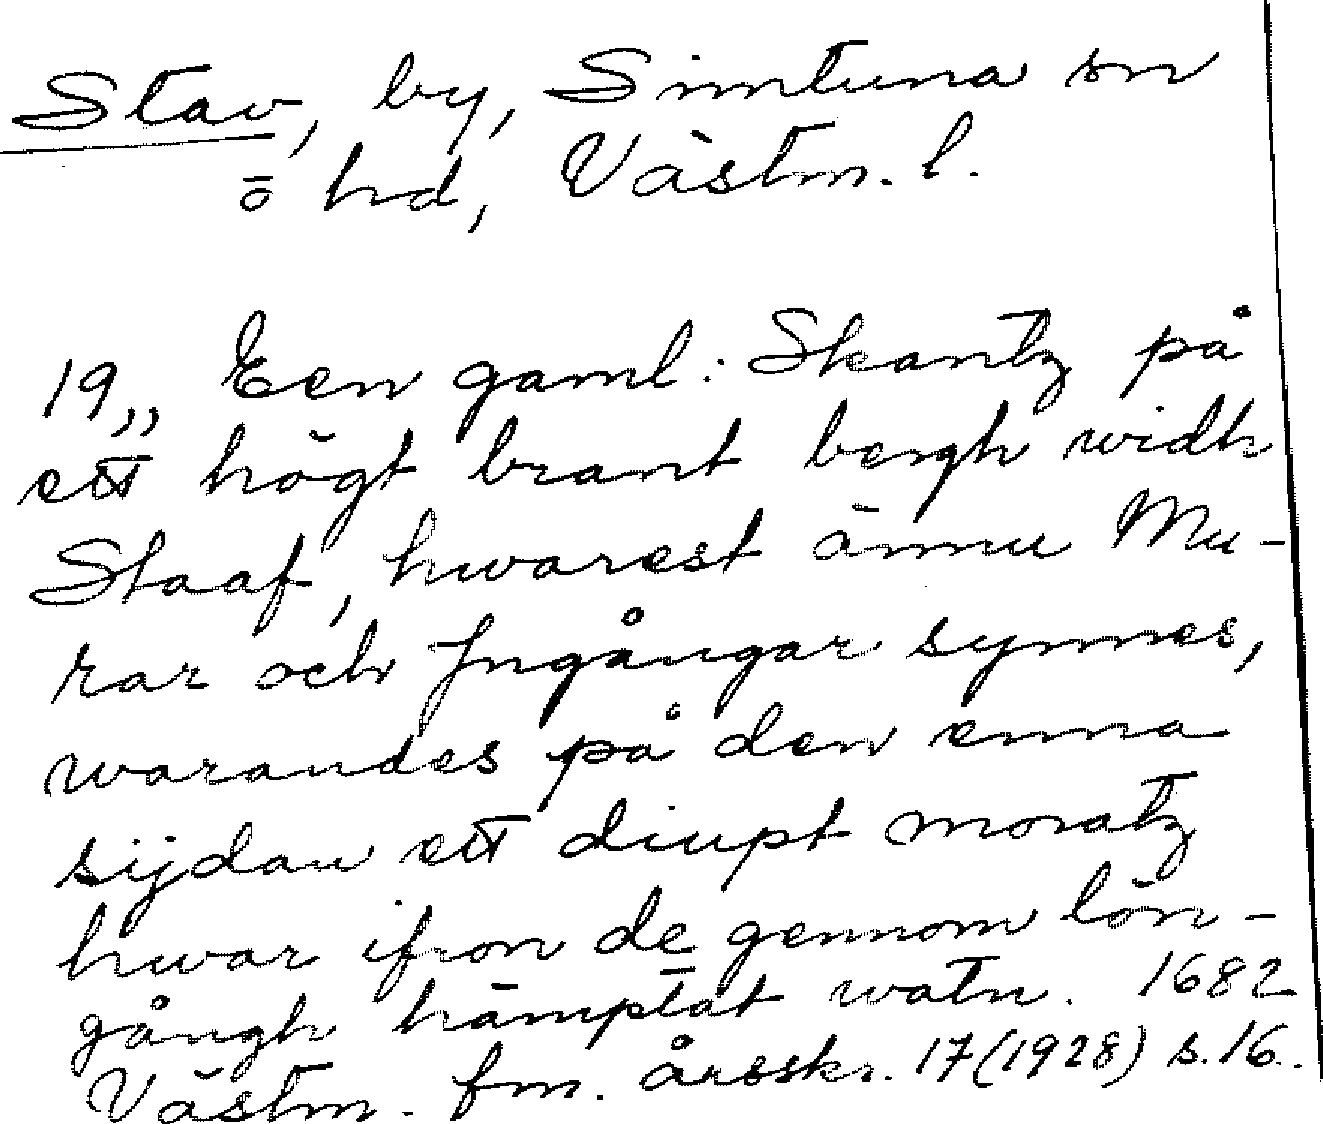 Stav, by, Simtuna sn
o hd, Västm. l.
19,, Een gaml: Skantz på
ett högt brant bergh widh
Staaf, hwarest ännu Mu-
rar och Jngångar synnes,
warandes på den enna
sijdan ett diupt moratz
hwar ifron de gennom lön-
gångh hämptat watn. 1682
Västm. fm. årsskr. 17 (1928) s. 16.